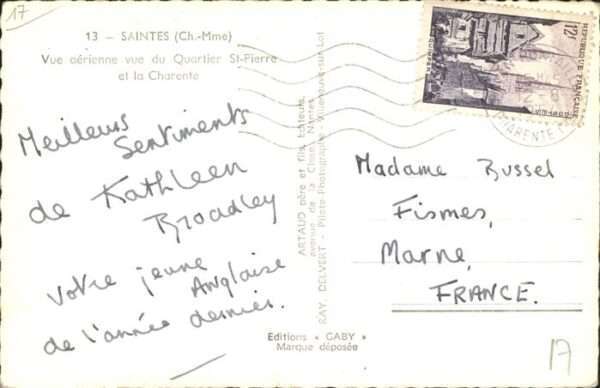 17
13 – SAINTES (Ch.-Mme)
Vue aérienne vue du Quartier St-Pierre
et la Charente
Meilleurs
Sentiments
de Kathleen
Broadley
Votre jeune
Anglaise
de l'année dernier.
ARTAUD père et fils, Editeurs,
avenue de la Close, Nantes
RAY. DELVERT - Pilote-Photographe Villeneuve-sur-Lot
Editions « GABY »
Marque déposée
12F
REPUBLIQUE FRANÇAISE
Madame Bussel
Fismes,
Marne,
FRANCE.
17